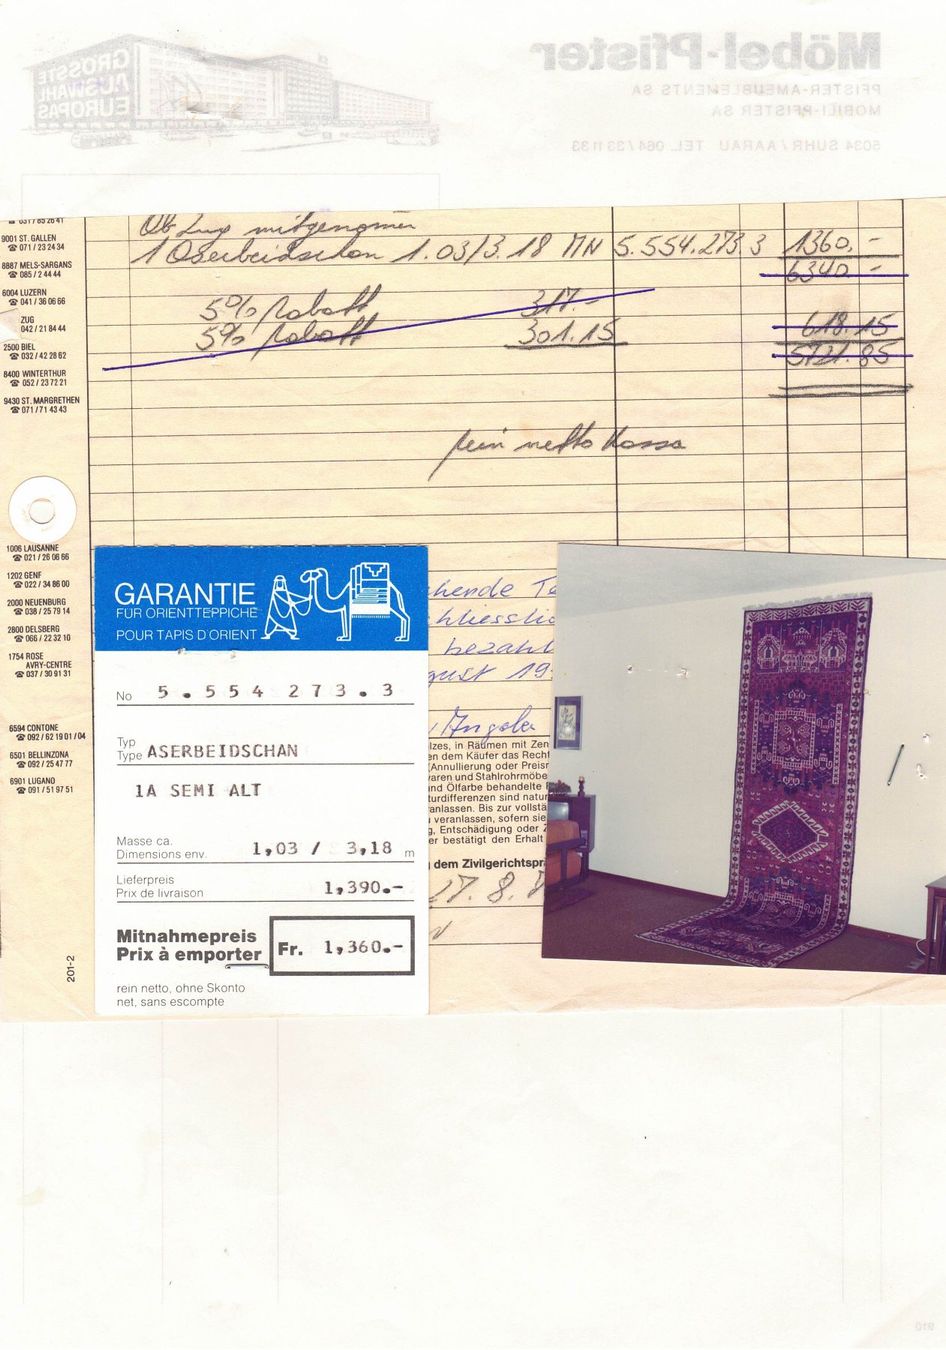 Möbel-Pfister
PFISTER-AMEUBLEMENTS SA
MOBILI-PFISTER SA
5034 SUHR/AARAU TEL. 064/33 11 33
GRÖSSTE
AUSWAHL
EUROPAS
☎ 031 / 85 26 41
9001 ST. GALLEN
☎ 071 / 23 24 34
8887 MELS-SARGANS
☎ 085 / 2 44 44
6004 LUZERN
☎ 041 / 36 06 66
ZUG
042 / 21 84 44
2500 BIEL
☎ 032 / 42 28 62
8400 WINTERTHUR
☎ 052 / 23 72 21
9430 ST. MARGRETHEN
☎ 071 / 71 43 43
1006 LAUSANNE
☎ 021 / 26 06 66
1202 GENF
☎ 022 / 34 86 00
2000 NEUENBURG
☎ 038 / 25 79 14
2800 DELSBERG
☎ 066 / 22 32 10
1754 ROSE
AVRY-CENTRE
☎ 037 / 30 91 31
6594 CONTONE
☎ 092 / 62 19 01 / 04
6501 BELLINZONA
☎ 092 / 25 47 77
6901 LUGANO
☎ 091 / 51 97 51
201-2
Ob Zug mitgenomen
1 Oserbeidschan 1.03/3.18 MN 5.554.273.3 1360.-
6340.-
5% Rabatt 317.-
5% Rabatt 301.15 618.15
5721.85
rein netto Kassa
GARANTIE
FÜR ORIENTTEPPICHE
POUR TAPIS D'ORIENT
No 5.554 273.3
Typ
Type ASERBEIDSCHAN
1A SEMI ALT
Masse ca.
Dimensions env. 1,03 / 3,18 m
Lieferpreis
Prix de livraison 1,390.-
Mitnahmepreis
Prix à emporter Fr. 1,360.-
rein netto, ohne Skonto
net, sans escompte
hende Te
hliesslic
bezahl
gust 19
Angela
olzes, in Räumen mit Zen
en dem Käufer das Recht
(Annullierung oder Preisr
waren und Stahlrohrmöbe
und Ölfarbe behandelte
turdifferenzen sind natur
anlassen. Bis zur vollstä
veranlassen, sofern sie
g, Entschädigung oder Z
er bestätigt den Erhalt
dem Zivilgerichtsprä
27.8.
910